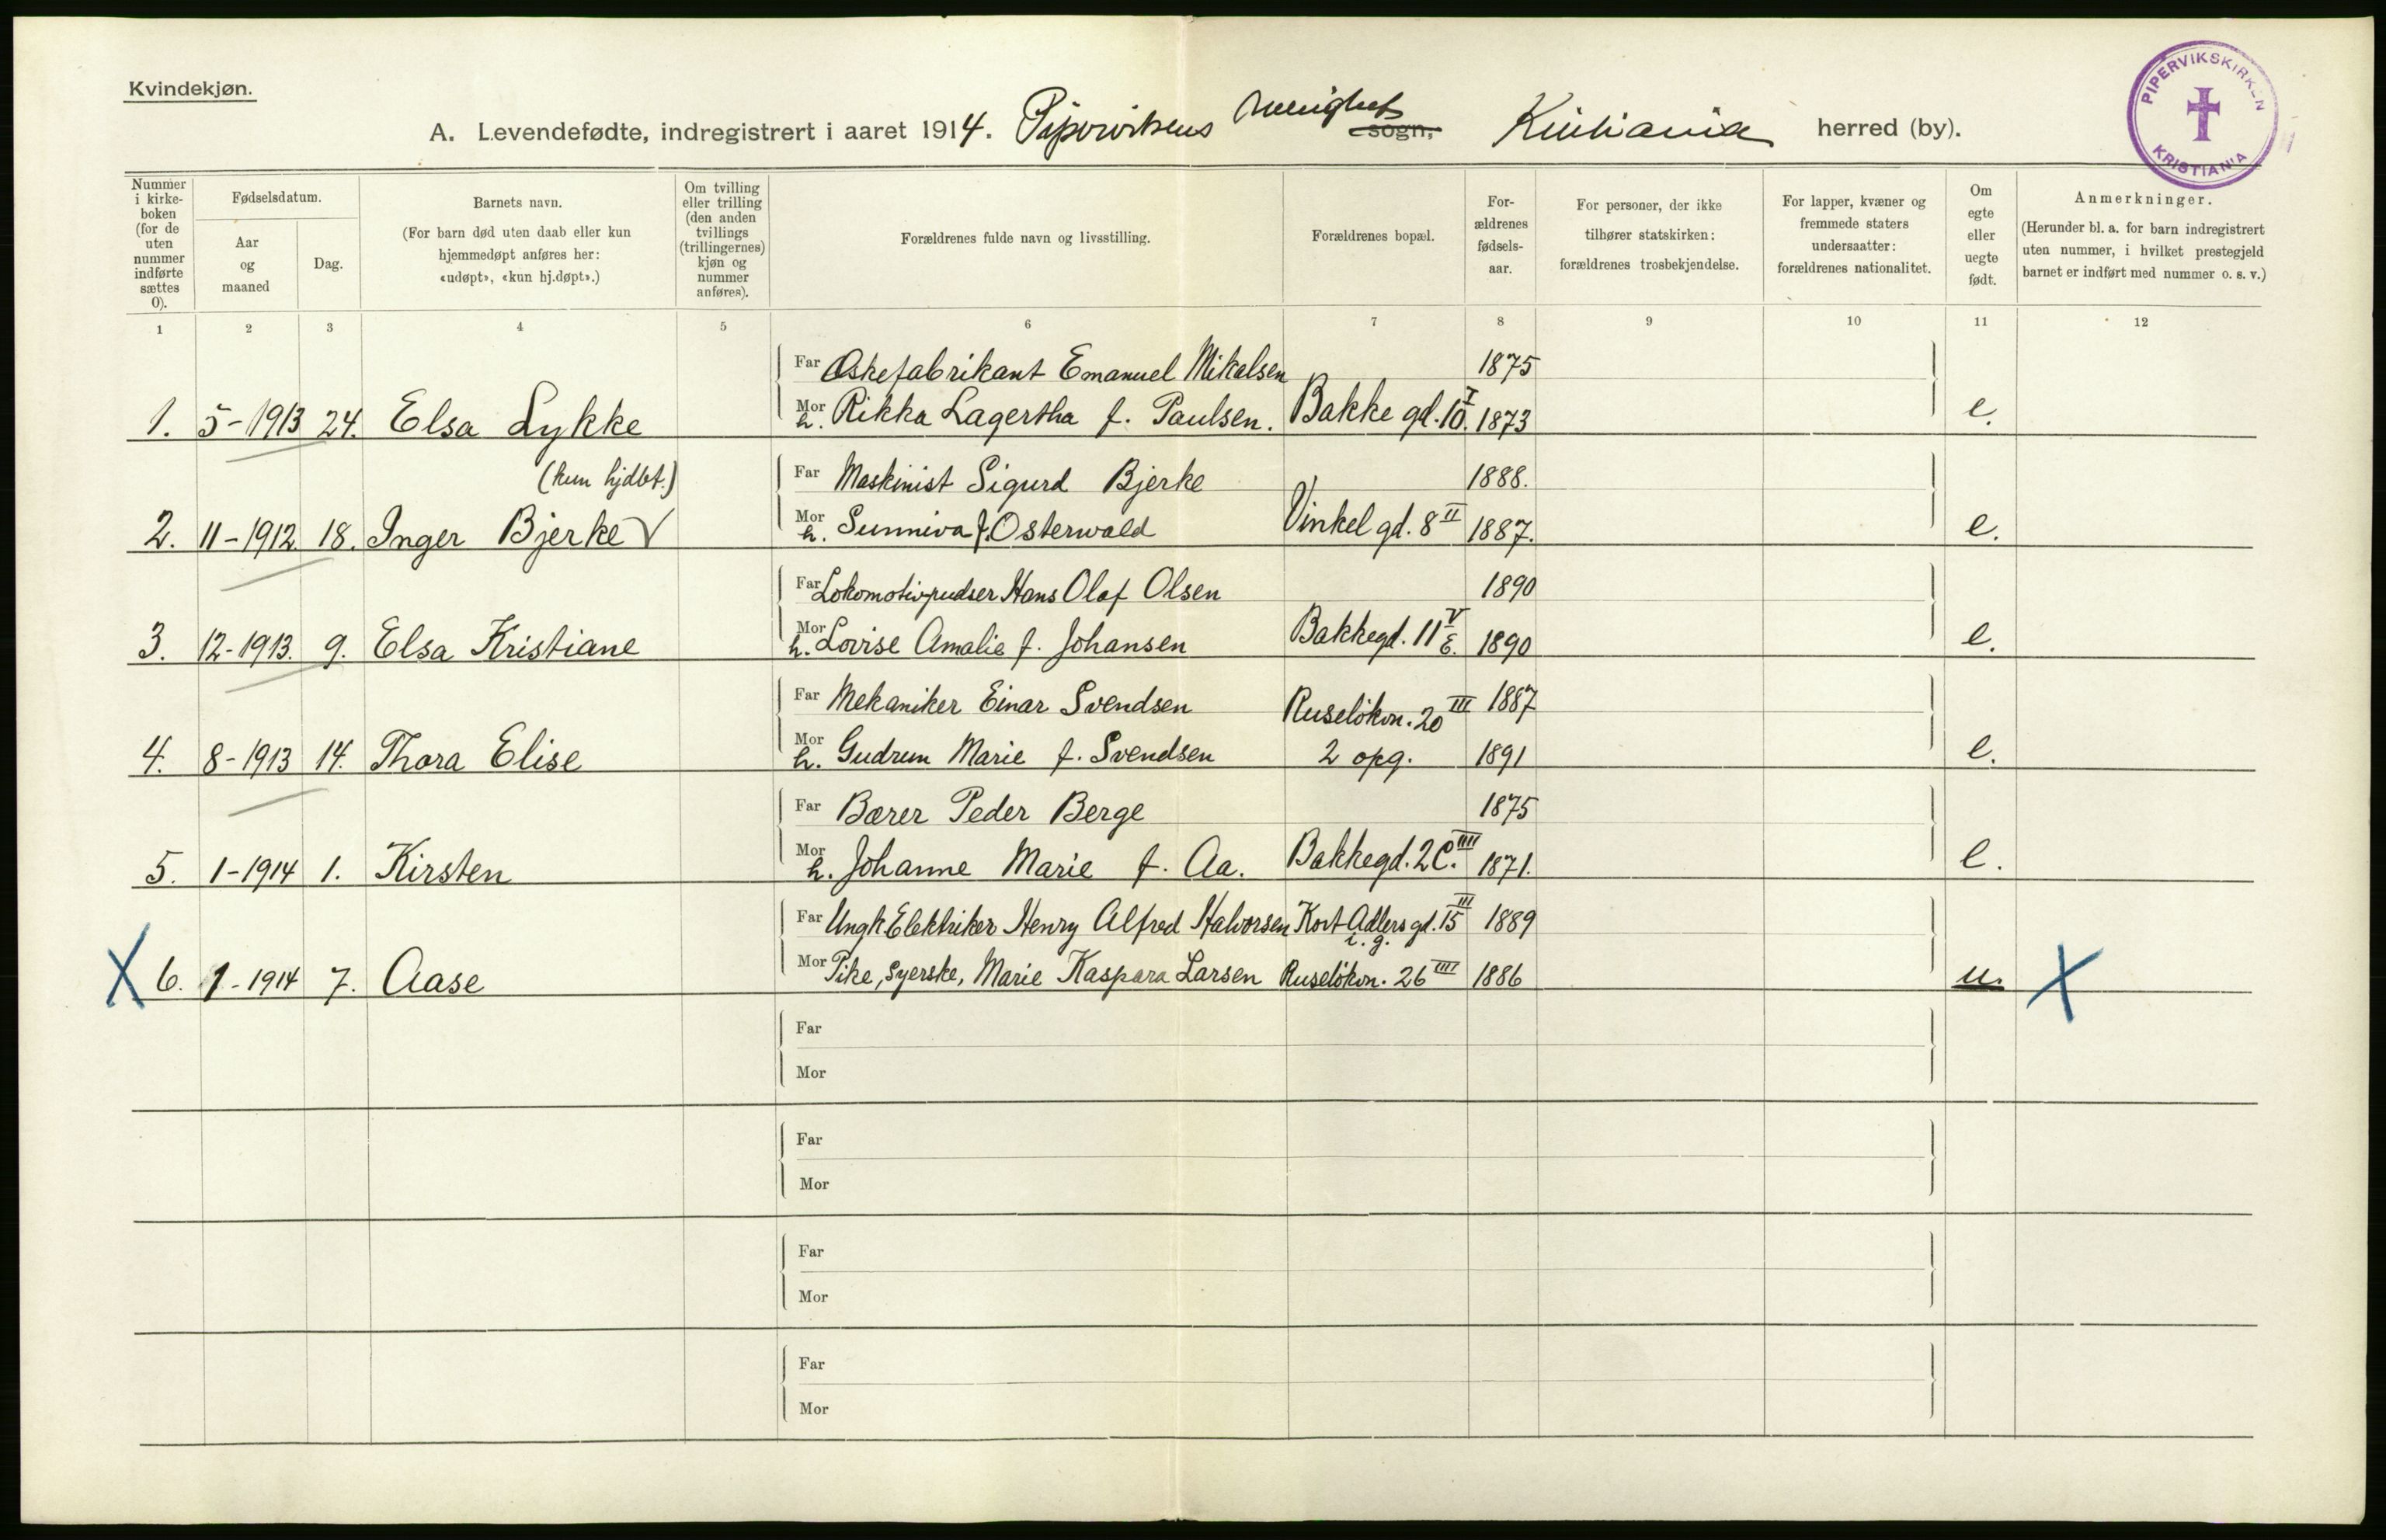 Kvindekjøn.
A. Levendefødte, indregistrert i aaret 1914. Pipervikens menighet sogn, Kristiania herred (by).
PIPERVIKSKIRKEN
KRISTIANIA
Nummer i kirke-boken (for de uten nummer indførte sættes 0).
Fødselsdatum.
Aar og maaned
Dag.
Barnets navn.
(For barn død uten daab eller kun hjemmedøpt anføres her: «udøpt», «kun hj.døpt».)
Om tvilling eller trilling (den anden tvillings (trillingernes) kjøn og nummer anføres).
Forældrenes fulde navn og livsstilling.
Forældrenes bopæl.
For-ældrenes fødsels-aar.
For personer, der ikke tilhører statskirken: forældrenes trosbekjendelse.
For lapper, kvæner og fremmede staters undersaatter: forældrenes nationalitet.
Om egte eller uegte født.
Anmerkninger.
(Herunder bl. a. for barn indregistrert uten nummer, i hvilket prestegjeld barnet er indført med nummer o. s. v.)
1 2 3 4 5 6 7 8 9 10 11 12
Far Æskefabrikant Emanuel Mikalsen 1875
1. 5-1913 24. Elsa Lykke Mor h. Rikka Lagertha f. Paulsen. Bakke gd. 10 I. 1873 e.
(kun hjdbt.) Far Maskinist Sigurd Bjerke 1888.
2. 11-1912 18. Inger Bjerke V Mor h. Sunniva f. Osterwald Vinkel gd. 8 II 1887. e.
Far Lokomotivpudser Hans Olaf Olsen 1890
3. 12-1913. 9. Elsa Kristiane Mor h. Lovise Amalie f. Johansen Bakkegd. 11 V E. 1890 e.
Far Mekaniker Einar Svendsen Ruseløkvn. 20 III 1887
4. 8-1913 14. Thora Elise Mor h. Gudrun Marie f. Svendsen 2 opg. 1891 e.
Far Bærer Peder Berge 1875
5. 1-1914 1. Kirsten Mor h. Johanne Marie f. Aa. Bakkegd. 2 C. IIII 1871. e.
Far Ungk Elektriker Henry Alfred Halvorsen Kort Adlers gd. 15 III i. g. 1889
X 6. 1-1914 7. Aase Mor Pike, Syerske, Marie Kaspara Larsen Ruseløkvn. 26 IIII 1886 u. X
Far
Mor
Far
Mor
Far
Mor
Far
Mor